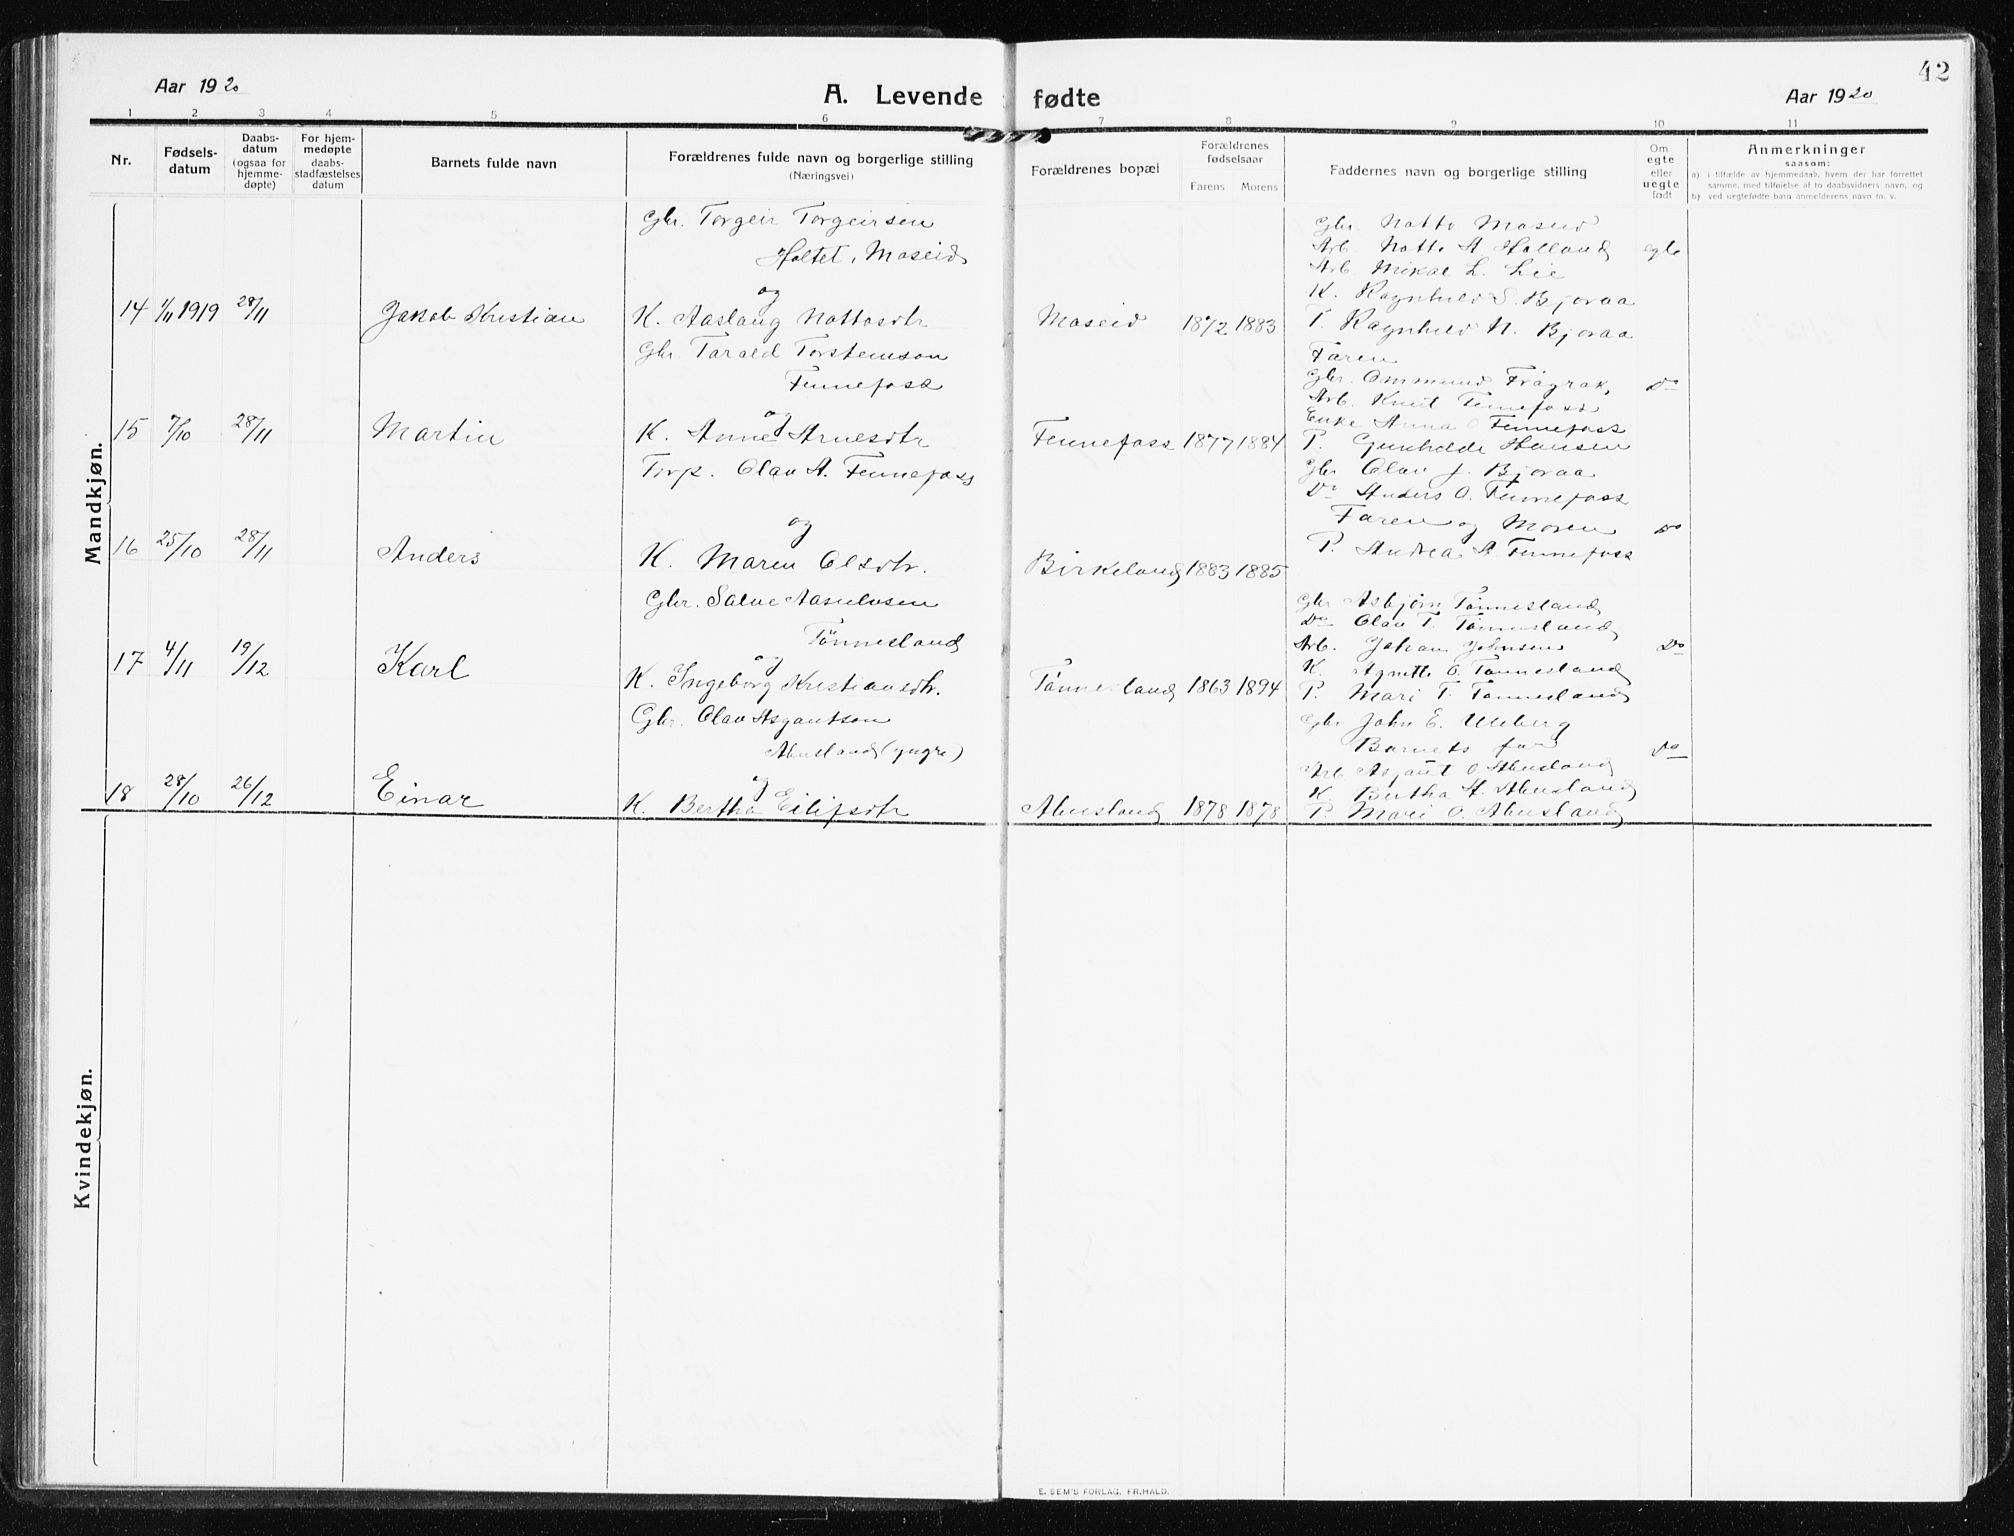 42
Aar 1920
A. Levende fødte
Aar 1920
1 2 3 4 5 6 7 8 9 10 11
Nr.
Fødsels-
datum
Daabs-
datum
(ogsaa for
hjemme-
døpte)
For hjem-
medøpte
daabs-
stadfæstelses
datum
Barnets fulde navn
Forældrenes fulde navn og borgerlige stilling
(Næringsvei)
Forældrenes bopæl
Forældrenes
fødselsaar
Farens Morens
Faddernes navn og borgerlige stilling
Om
egte
eller
uegte
født
Anmerkninger
saasom:
a) i tilfælde av hjemmedaab, hvem der har forrettet
samme, med tilføielse af to daabsvidners navn, og
b) ved uegtefødte barn anmelderens navn m. v.
Mandkjøn.
Gbr. Torgeir Torgeirsen
Holtet, Moseid
og
14 1/11 1919 28/11 Jakob Kristian K. Aaslaug Nottosdtr Moseid 1872 1883
Gbr. Notto Moseid
Arb. Notto A Holland egte
Arb Mikal L. Lie
K. Ragnhild S. Bjoraa
P. Ragnhild N. Bjoraa
Gbr. Tarald Torsteinson
Fennefoss
og
15 7/10 28/11 Martin K. Anne Arnesdtr Fennefoss 1877 1884
Faren
Gbr. Ommund Frøgrak, Do
Arb. Knut Fennefoss
Enke Anna O Fennefoss
P. Gunhilde Hansen
Torp. Olav A. Fennefoss
og
16 25/10 28/11 Anders K. Maren Olsdtr. Birkeland 1883 1885
Gbr Olav J. Bjoraa
Do Anders O. Fennefoss
Faren og Moren Do
P. Andrea A Fennefoss
Gbr. Salve Aasulvsen
Tønnesland
og
17 4/11 19/12 Karl K. Ingeborg Kristiansdtr. Tønnesland 1863 1894
Gbr Asbjørn Tønnesland
Do Olav T. Tønnesland
Arb. Johan Johnsen Do
K. Agnette O. Tønnesland
P. Mari T. Tønnesland
Gbr. Olav Asgautson
Abusland (yngre)
og
18 28/10 26/12 Einar K. Bertha Eilifsdtr Abusland 1878 1878
Gbr John E. Uleberg
Barnets far Do
Arb Asgaut O. Abusland
K Bertha A. Abusland
P. Mari O. Abusland
Kvindekjøn.
E. SEM'S FORLAG, FR.HALD.